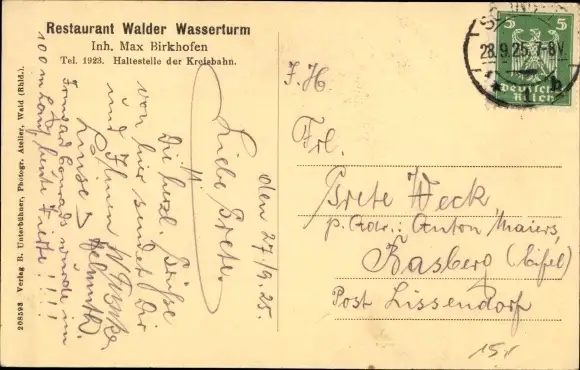 Restaurant Walder Wasserturm
Inh. Max Birkhofen
Tel. 1923. Haltestelle der Kreisbahn.
208593 Verlag R. Unterbühner, Photogr. Atelier, Wald (Rhld.).
den 27/9.25.
Liebe Grete.
Die herzl. Grüße
von hier sendet Dir
und Ihnen
Luise
Helmuth.
wurde im
100 m Lauf heute Erste!!!!
5 5
Deutsches
Reich
28.9.25. 7-8V.
J. H
Frl.
Grete Weck
p. Adr.: Anton Maiers,
Basberg (Eifel)
Post Lissendorf
15,-